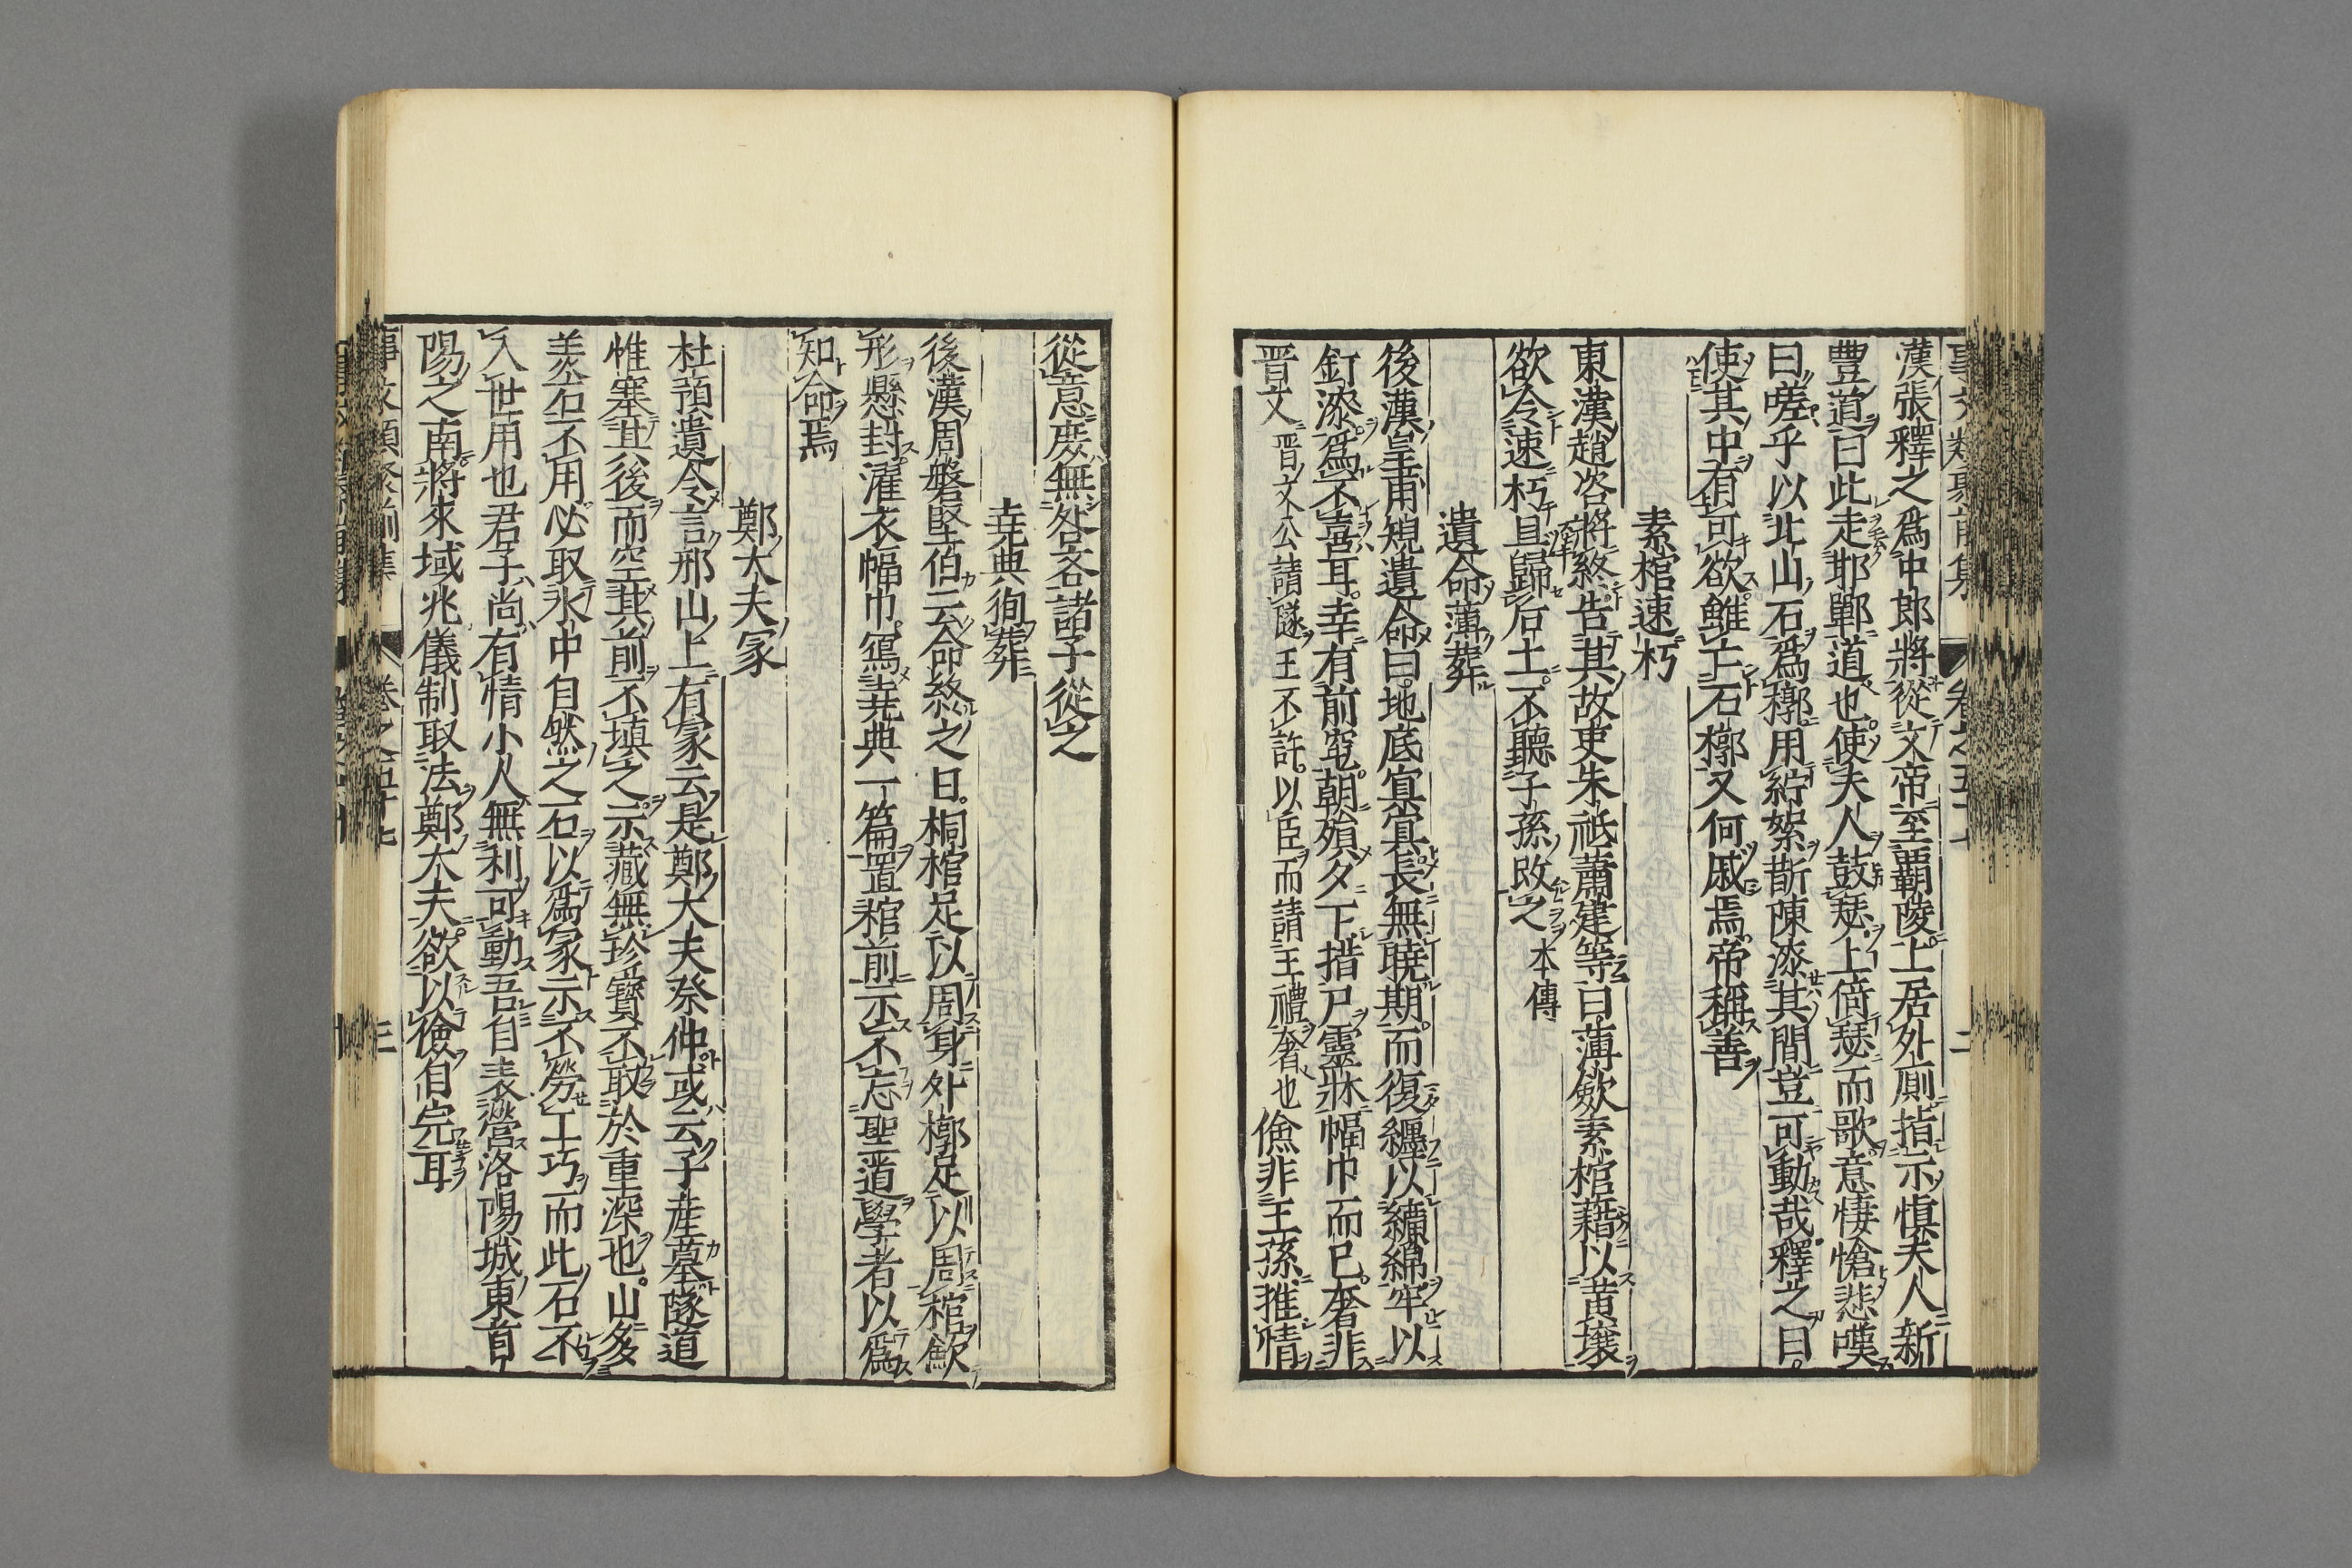 漢張釋之爲中郎將從文帝至覇陵上居外廁指示愼夫人新
豊道曰此走邯鄲道也使夫人鼓瑟上倚瑟而歌意悽愴悲嘆
曰嗟乎以北山石爲槨用紵絮斮陳漆其間豈可動哉釋之曰
使其中有可欲雖亡石槨又何戚焉帝稱善
素棺速朽
東漢趙咨將終告其故吏朱祗蕭建等曰薄歛素棺藉以黄壤
欲令速朽且歸后土不聽子孫改之本傳
遺命薄葬
後漢皇甫規遺命曰地底寘㝠長無曉期而復纒以纊綿牢以
釘漆爲不喜耳幸有前窀朝殞夕下措尸靈牀幅巾而已奢非
晋文晋文公請隧王不許以臣而請王禮奢也儉非王孫推情
從意庶無咎吝諸子從之
尭典徇葬
後漢周磐堅伯云命終之日桐棺足以周身外槨足以周棺歛
形懸封濯衣幅巾寫尭典一篇置棺前示不忘聖道學者以爲
知命焉
鄭大夫冢
杜預遺令言邢山上有冢云是鄭大夫祭仲或云子産墓隧道
惟塞其後而空其前不填之示藏無珍寳不取於重深也山多
美石不用必取水中自然之石以爲冢示不勞工巧而此石不
入世用也君子尚有情小人無利可動吾自表營洛陽城東首
陽之南將來域兆儀制取法鄭大夫欲以儉自完耳
事文類聚前集 卷之五十七 三